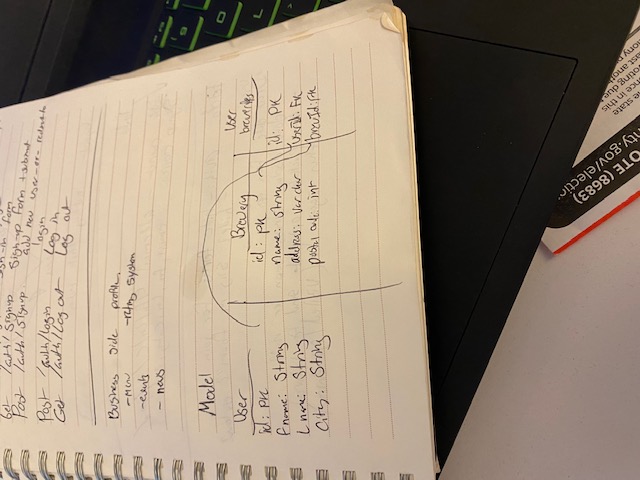 Get /auth/signup sign-in form
Post /auth/signup Sign-up form + submit
add new user
login
Post /auth/login Log in
Get /auth/Log out Log out
Business side profile
- menu - rating system
- events
- news
Model
User
id: PK
Fname: String
Lname: String
City: String
Brewery
id: PK
name: String
address: varchar
postal code: int
User
breweries
id: PK
userId: FK
brewId: FK
9
OTE (8683)
ity.gov/electio
e state
oting in this
ast anoth
mony